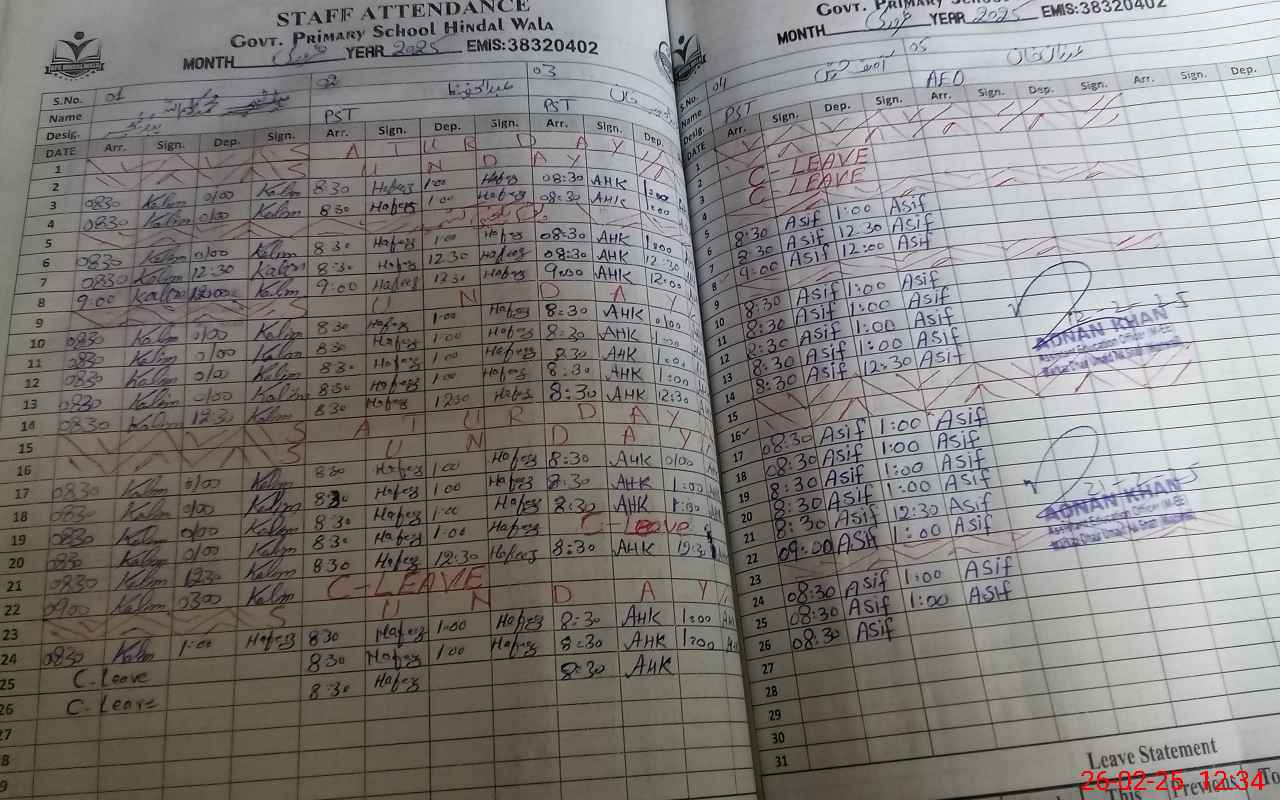 STAFF ATTENDANCE
GOVT. PRIMARY SCHOOL HINDAL WALA
MONTH فروری YEAR 2025 EMIS:38320402
S.No. 01 02 03
Name
Desig. PST PST
DATE Arr. Sign. Dep. Sign. Arr. Sign. Dep. Sign. Arr. Sign. Dep.
1 S A T U R D A Y
2 S U N D A Y
3 0830 Kalim 0100 Kalim 8:30 Hafeez 1:00 Hafeez 08:30 AHK 1:00
4 0830 Kalim 0100 Kalim 8:30 Hafeez 1:00 Hafeez 08:30 AHK 1:00
5
6 0830 Kalim 0100 Kalim 8:30 Hafeez 1:00 Hafeez 08:30 AHK 1:00
7 0830 Kalim 12:30 Kalim 8:30 Hafeez 12:30 Hafeez 08:30 AHK 12:30
8 9:00 Kalim 12:00 Kalim 9:00 Hafeez 12:30 Hafeez 9:00 AHK 12:00
9 S U N D A Y
10 0830 Kalim 0100 Kalim 8:30 Hafeez 1:00 Hafeez 8:30 AHK 0100
11 0830 Kalim 0100 Kalim 8:30 Hafeez 1:00 Hafeez 8:30 AHK 1:00
12 0830 Kalim 0100 Kalim 8:30 Hafeez 1:00 Hafeez 8:30 AHK 1:00
13 0830 Kalim 0100 Kalim 8:30 Hafeez 1:00 Hafeez 8:30 AHK 1:00
14 0830 Kalim 12:30 Kalim 8:30 Hafeez 12:30 Hafeez 8:30 AHK 12:30
15 S A T U R D A Y
16 S U N D A Y
17 0830 Kalim 0100 Kalim 8:30 Hafeez 1:00 Hafeez 8:30 AHK 0100
18 0830 Kalim 0100 Kalim 8:30 Hafeez 1:00 Hafeez 8:30 AHK 1:00
19 0830 Kalim 0100 Kalim 8:30 Hafeez 1:00 Hafeez 8:30 AHK 1:00
20 0830 Kalim 0100 Kalim 8:30 Hafeez 1:00 Hafeez C-Leave
21 0830 Kalim 1230 Kalim 8:30 Hafeez 12:30 Hafeez 8:30 AHK 12:30
22 0900 Kalim 0300 Kalim C-LEAVE
23 S U N D A Y
24 0830 Kalim 1:00 Hafeez 8:30 Hafeez 1:00 Hafeez 8:30 AHK 1:00
25 C-Leave 8:30 Hafeez 1:00 Hafeez 8:30 AHK 1:00
26 C-Leave 8:30 Hafeez 8:30 AHK
27
8
9
GOVT. PRIMARY
MONTH فروری YEAR 2025 EMIS:38320402
S.No. 04 05
Name
Desig. PST AEO
DATE Arr. Sign. Dep. Sign. Arr. Sign. Dep. Sign. Arr. Sign. Dep.
1
2
3 C-LEAVE
4 C-LEAVE
5
6 8:30 Asif 1:00 Asif
7 8:30 Asif 12:30 Asif
8 9:00 Asif 12:00 Asif
9
10 8:30 Asif 1:00 Asif
11 8:30 Asif 1:00 Asif
12 8:30 Asif 1:00 Asif
13 8:30 Asif 1:00 Asif
14 8:30 Asif 12:30 Asif
ADNAN KHAN
15
16
17 08:30 Asif 1:00 Asif
18 08:30 Asif 1:00 Asif
19 8:30 Asif 1:00 Asif
20 8:30 Asif 1:00 Asif
21 8:30 Asif 12:30 Asif
22 09:00 Asif 1:00 Asif
ADNAN KHAN
23
24 08:30 Asif 1:00 Asif
25 08:30 Asif 1:00 Asif
26 08:30 Asif
27
28
29
30
31
Leave Statement
This Previous To
26-02-25 12:34